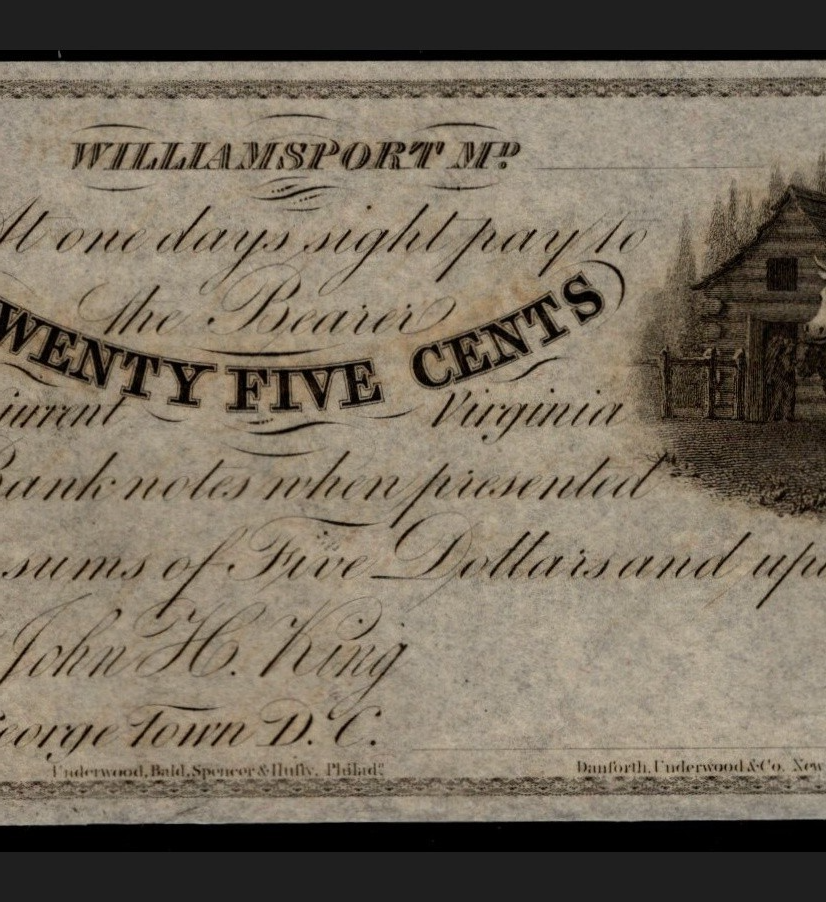 WILLIAMSPORT Md.
At one days sight pay to
the Bearer
TWENTY FIVE CENTS
Current Virginia
Bank notes when presented
sums of Five Dollars and up
John H. King
George Town D. C.
Underwood, Bald, Spencer & Hufty, Philada. Danforth, Underwood & Co. New